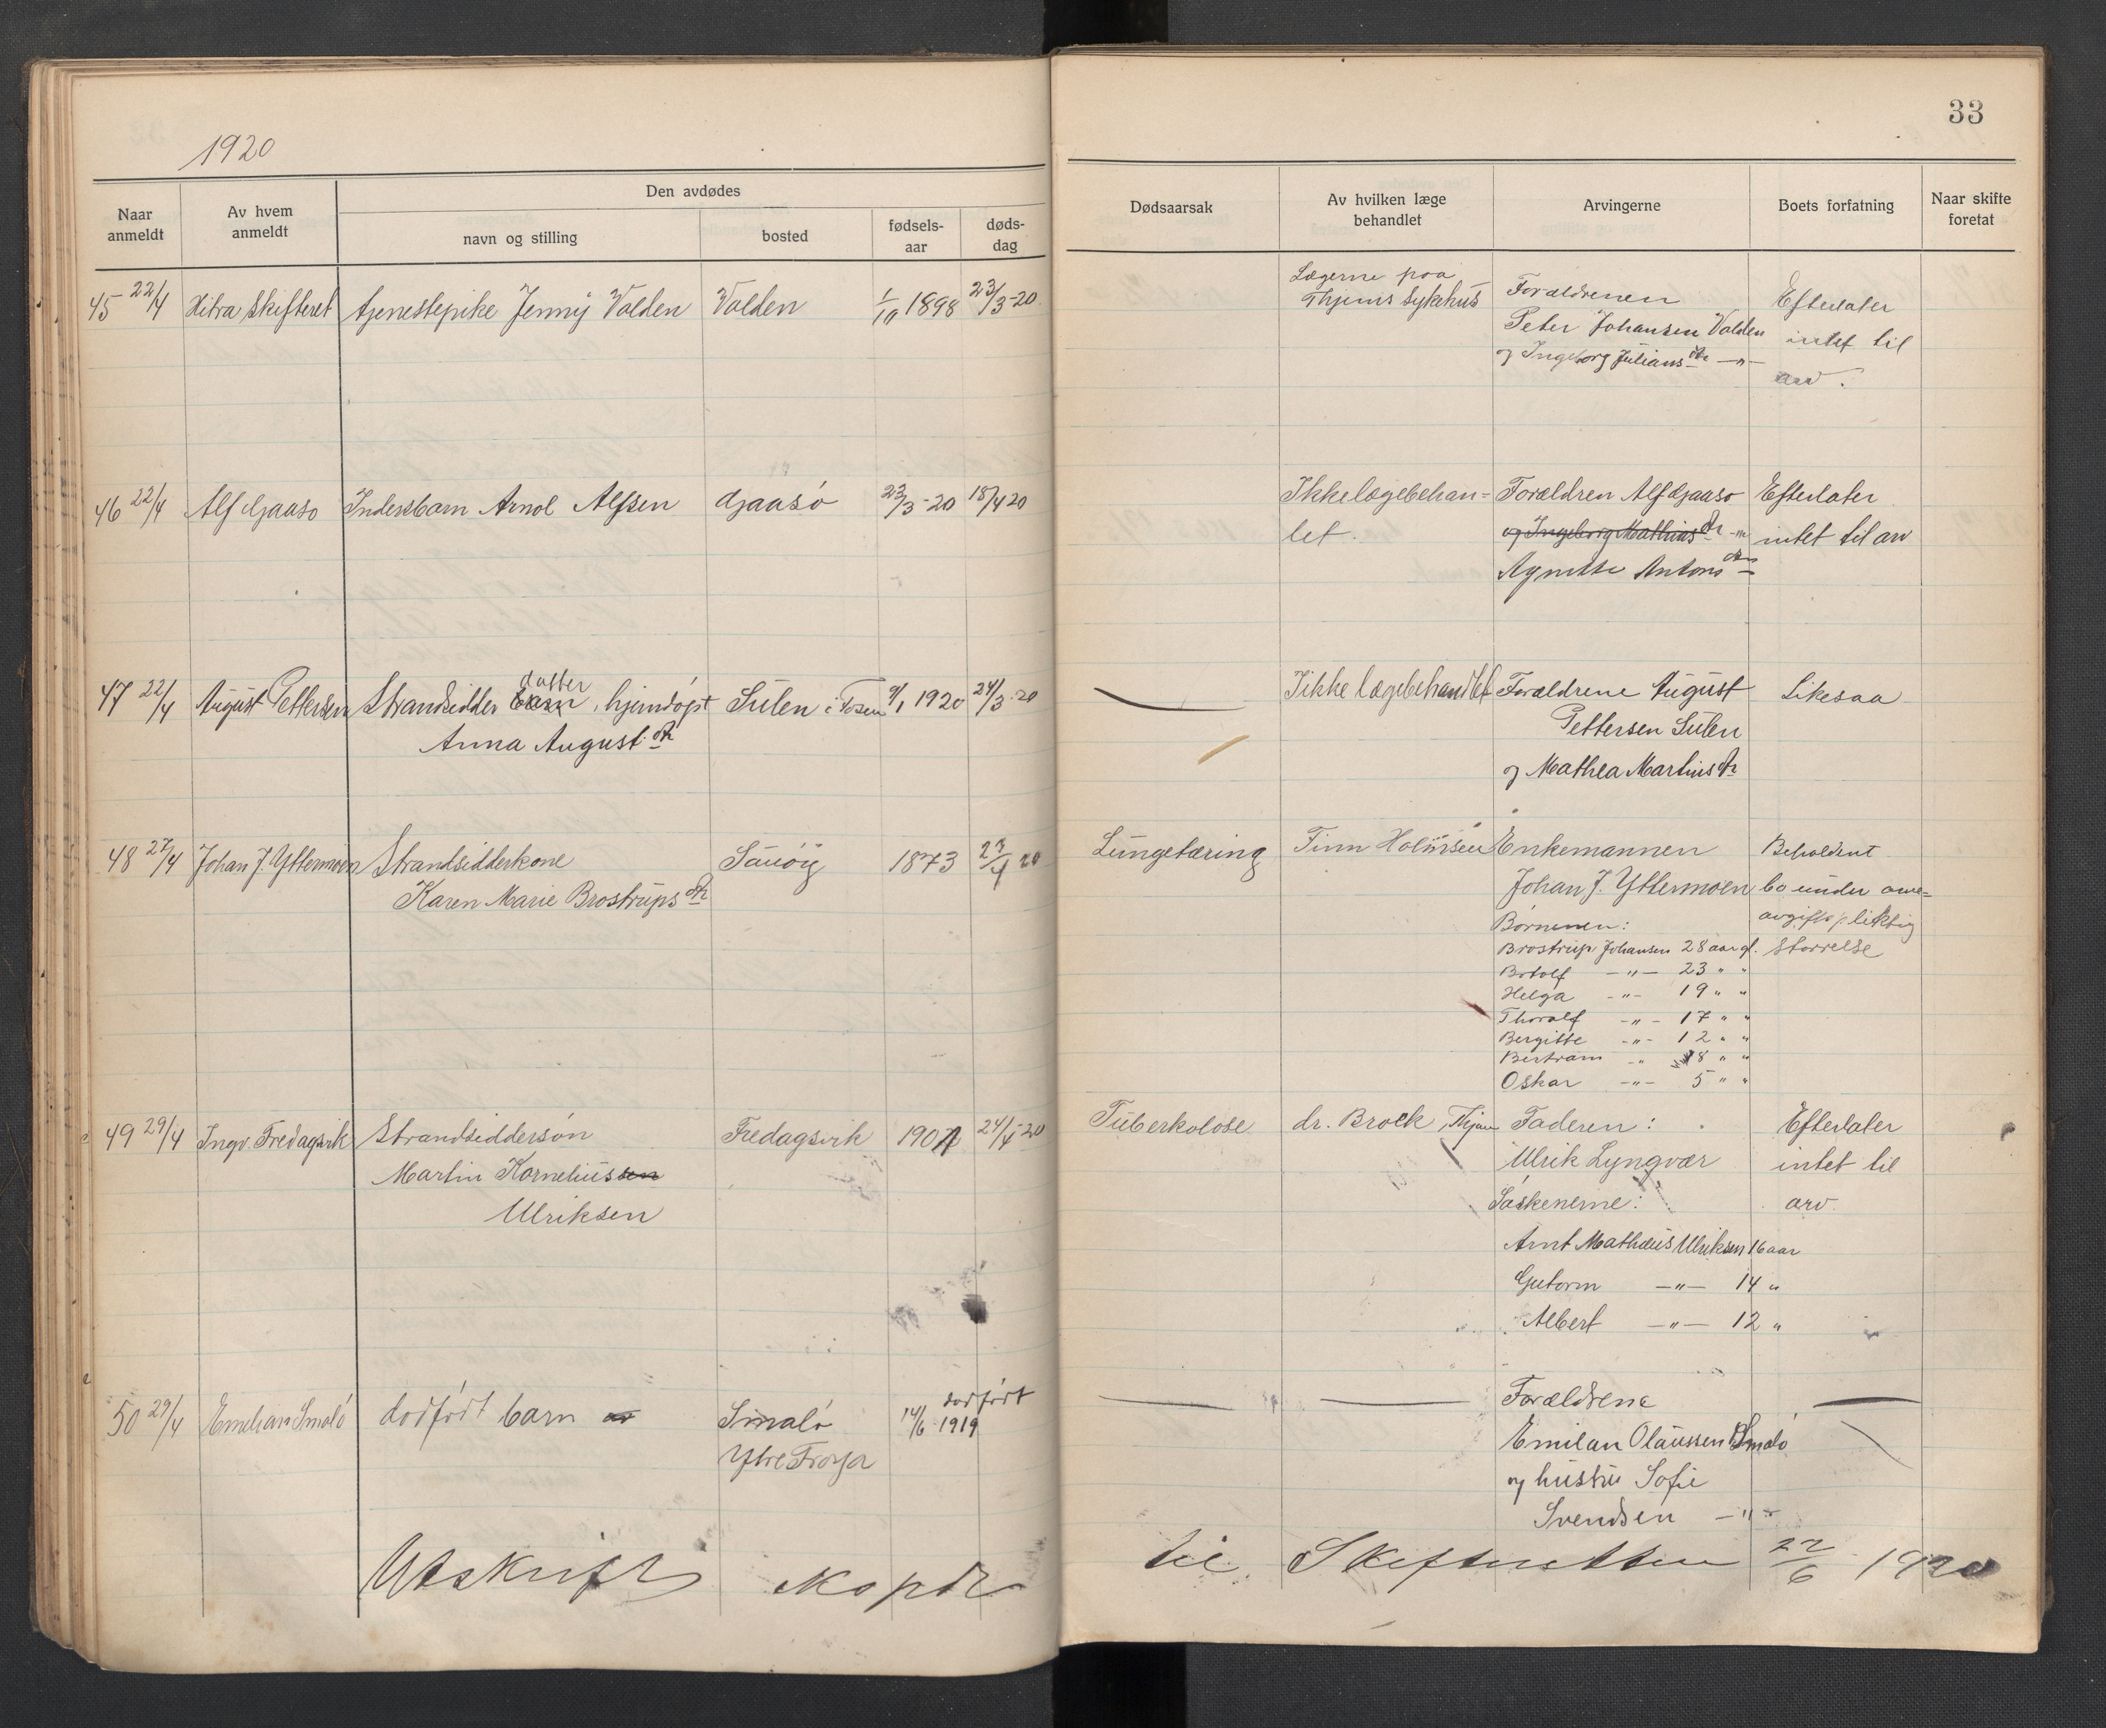 33
1920
Naar anmeldt
Av hvem anmeldt
Den avdødes
navn og stilling
bosted
fødsels-aar
døds-dag
Dødsaarsak
Av hvilken læge behandlet
Arvingerne
Boets forfatning
Naar skifte foretat
45 22/4 Hitra Skifteret tjenestepike Jenny Valden Valden 1/10 1898 23/3-20.
Lægerne paa
Thjems Sykehus
Forældrenen
Peter Johansen Valden
og Ingeborg Julians dtr —"—
Efterlater
intet til
arv.
46 22/4 Alf Gjaasø Indersbarn Arnol Alfsen Gjaasø 23/3-20 18/4 20
Ikke lægebehan=
let.
Forældren Alf Gjaasø
og Ingeborg Mathias dtr -"-
Agnette Antons dtr
Efterlater
intet til arv
47 22/4 August Pettersen Strandsidder barn datter, hjemdøpt Sulen i Fosen 9/1 1920 24/3-20
Anna August. dtr
Ikke lægebehandlet
Forældrene August
Pettersen Sulen
og Mathea Martins dtr
Likesaa
48 27/4 Johan J. Yttermoen Strandsidderkone 1873 20
Karen Marie Brostrups dtr
Lungetæring
Finn Holmsen
Enkemannen
Johan J. Yttermoen
Børnenen:
Brostrup Johansen 28 aar gl.
Botolf —"— 23 " "
Helga —"— 19 " "
Thoralf —"— 17 " "
Bergitte —"— 12 " "
Bertram —" 8 " "
Oskar —"— 5 " "
Beholdent
bo under arve=
avgiftspliktig
størrelse
49 29/4 Ingv. Fredagsvik Strandsiddersøn Fredagsvik 24/4-20
Martin Korneliussen
Ulriksen
Tuberkolose
dr. Brock, Thjem
Faderen:
Ulrik Lyngvær
Søskenerne:
Arnt Mathæus Ulriksen 16 aar
Gutorm —"— 14 "
Albert —"— 12 "
Efterlater
intet til
arv.
50 29/4 Emelian Smalø dødfødt barn Smalø 14/6 1919 dødfødt
Ytre Frøya
Forældrene
Emilan Olaussen Smalø
og hustru Sofie
Svendsen —"—
Utskrift til Skifteretten 22/6 1920